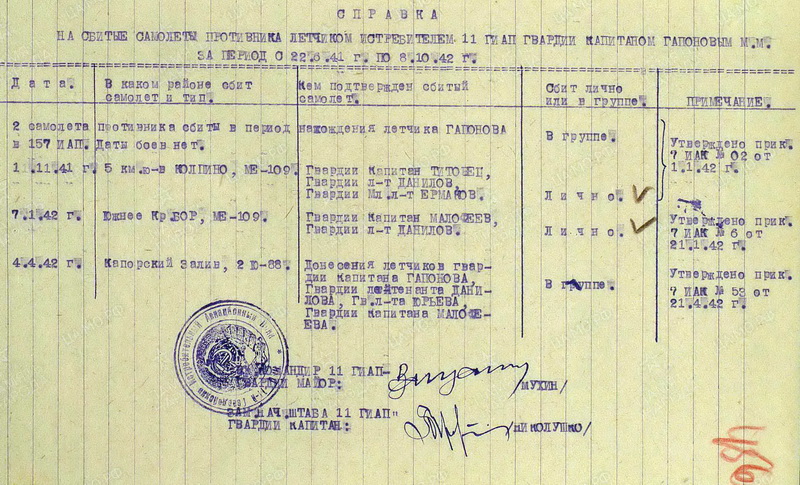 СПРАВКА
НА СБИТЫЕ САМОЛЕТЫ ПРОТИВНИКА ЛЕТЧИКОМ ИСТРЕБИТЕЛЕМ 11 ГИАП ГВАРДИИ КАПИТАНОМ ГАПОНОВЫМ М.М.
ЗА ПЕРИОД С 22.6.41 г. ПО 8.10.42 г.
Дата. В каком районе сбит Кем подтвержден сбитый Сбит лично
самолет и тип. самолет. или в группе. ПРИМЕЧАНИЕ.
2 самолета противника сбиты в период нахождения летчика ГАПОНОВА В группе.
в 157 ИАП. Даты боев нет. Утверждено прик.
7 ИАК № 02 от
1.1.42 г.
11.11.41 г. 5 км.ю-в КОЛПИНО, МЕ-109. Гвардии Капитан ТИТОВЕЦ,
Гвардии л-т ДАНИЛОВ,
Гвардии Мл.л-т ЕРМАКОВ. Лично.
7.1.42 г. Южнее Кр.БОР, МЕ-109. Гвардии Капитан МАЛОФЕЕВ, Утверждено прик.
Гвардии л-т ДАНИЛОВ. Лично. 7 ИАК № 6 от
21.1.42 г.
4.4.42 г. Капорский Залив, 2 Ю-88. Донесения летчиков гвар- Утверждено прик.
дии Капитана ГАПОНОВА,
Гвардии лейтенанта ДАНИ- В группе. 7 ИАК № 53 от
ЛОВА, Гв.л-та ЮРЬЕВА, 21.4.42 г.
Гвардии Капитана МАЛОФЕ-
ЕВА.
КОМАНДИР 11 ГИАП-
ГВАРДИИ МАЙОР: /МУХИН/
ЗАМ.НАЧ.ШТАБА 11 ГИАП"
ГВАРДИИ КАПИТАН: /НИКОЛУШКО/